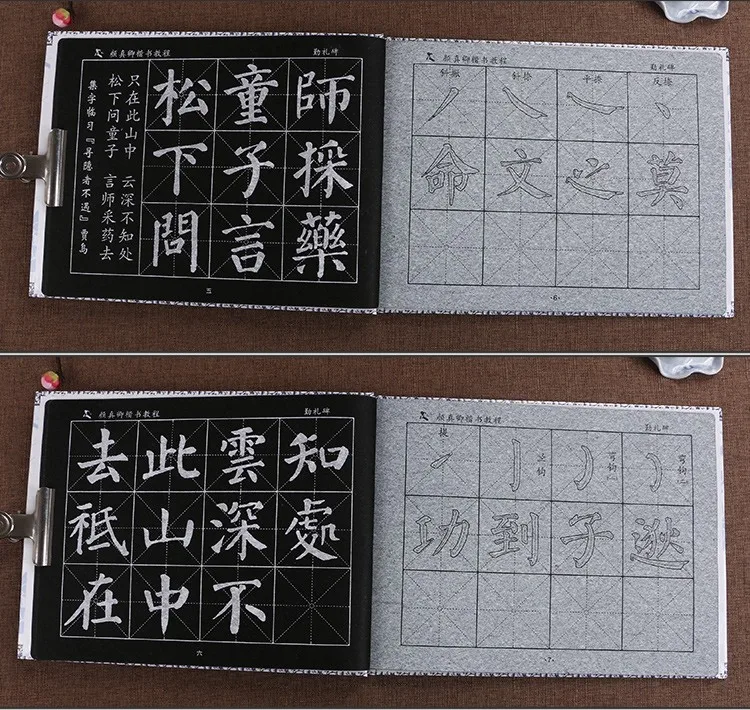 颜真卿楷书教程
勤礼碑
集字临习『寻隐者不遇』贾岛
松下问童子 言师采药去
只在此山中 云深不知处
松下問
童子言
師採藥
五
颜真卿楷书教程
勤礼碑
斜撇 斜捺 平捺 反捺
命文之莫
·6·
颜真卿楷书教程
勤礼碑
去祗在
此山中
雲深不
知處
六
颜真卿楷书教程
勤礼碑
提 竖钩 弯钩(一) 弯钩(二)
功到子逖
·7·